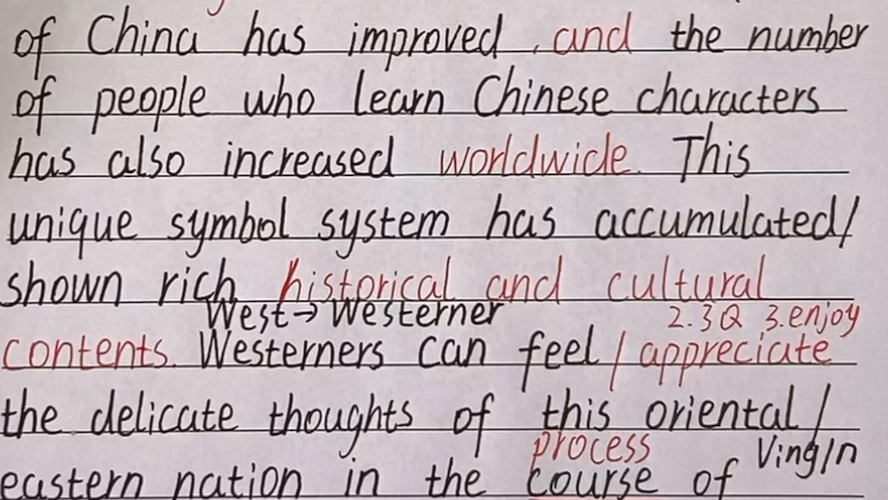 of China has improved , and the number
of people who learn Chinese characters
has also increased worldwide. This
unique symbol system has accumulated/
shown rich historical and cultural
West→Westerner 2.欣赏 3.enjoy
contents. Westerners can feel / appreciate
the delicate thoughts of this oriental /
process Ving/n
eastern nation in the course of